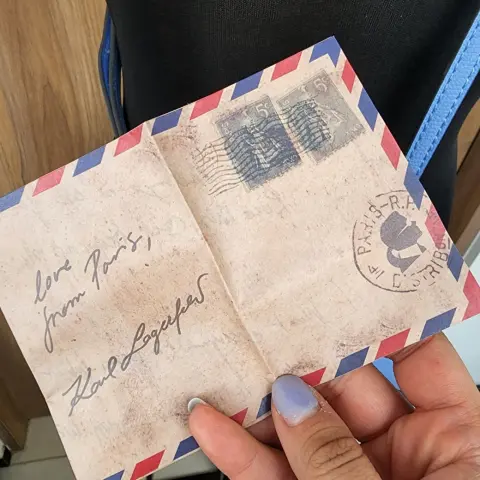 love
from Paris,
Karl Lagerfeld
5 5
PARIS-R.P.
DISTRIBU